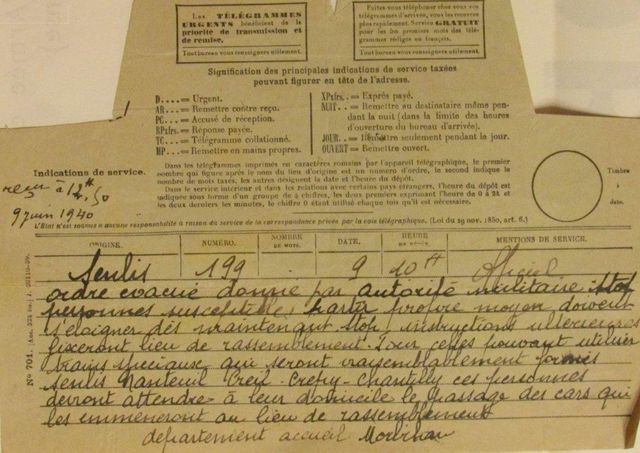 Les TÉLÉGRAMMES
URGENTS bénéficient de la
priorité de transmission et
de remise.
Tout bureau vous renseignera utilement.
Faites vous téléphoner chez vos vos
télégrammes d'arrivée, vous les recevrez
plus rapidement. Service GRATUIT
pour les premiers mots des télé-
grammes rédigés en français.
Tout bureau vous renseignera utilement.
Signification des principales indications de service taxées
pouvant figurer en tête de l'adresse.
D.... = Urgent.
AR... = Remettre contre reçu.
PC... = Accusé de réception.
RPxfrs. = Réponse payée.
TC... = Télégramme collationné.
MP... = Remettre en mains propres.
XPxfrs. = Exprès payé.
NUIT.. = Remettre au destinataire même pen-
dant la nuit (dans la limite des heures
d'ouverture du bureau d'arrivée).
JOUR. = Remettre seulement pendant le jour.
OUVERT = Remettre ouvert.
Indications de service.
Dans les télégrammes imprimés en caractères romains par l'appareil télégraphique, le premier
nombre qui figure après le nom du lieu d'origine est un numéro d'ordre, le second indique le
nombre de mots taxés, les autres désignent la date et l'heure de dépôt.
Dans le service intérieur et dans les relations avec certains pays étrangers, l'heure du dépôt est
indiquée sous forme d'un groupe de 4 chiffres, les deux premiers exprimant l'heure de 0 à 24 et
les deux derniers les minutes, le chiffre 0 étant utilisé chaque fois qu'il est nécessaire.
Timbre
à
date.
reçu à 12H 50
9 juin 1940
L'État n'est soumis à aucune responsabilité à raison du service de la correspondance privée par la voie télégraphique. (Loi du 29 nov. 1850, art. 6.)
ORIGINE. NUMÉRO. NOMBRE DE MOTS. DATE. HEURE DE MENTIONS DE SERVICE.
Senlis 199 9 10H Officiel
ordre évacué donné par autorité militaire stop
personnes susceptibles partir propre moyen doivent
s'éloigner dès maintenant stop instructions ultérieures
fixeront lieu de rassemblement. Pour celles pouvant utiliser
trains spéciaux qui seront vraisemblablement formés
Senlis Nanteuil Creil Crépy-Chantilly ces personnes
devront attendre à leur domicile le passage des cars qui
les emmèneront au lieu de rassemblement
département accueil Morbihan
N° 701.